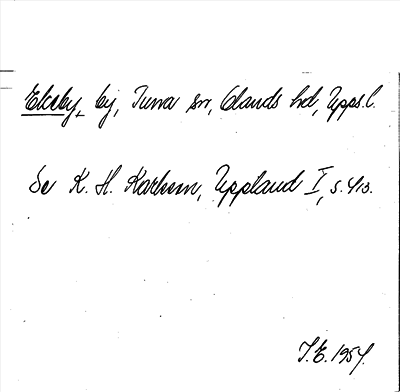 Ekeby, by, Tuna sn, Olands hd, Upps.l.
Se K. H. Karlsson, Uppland I, s. 413.
J.E. 1954.